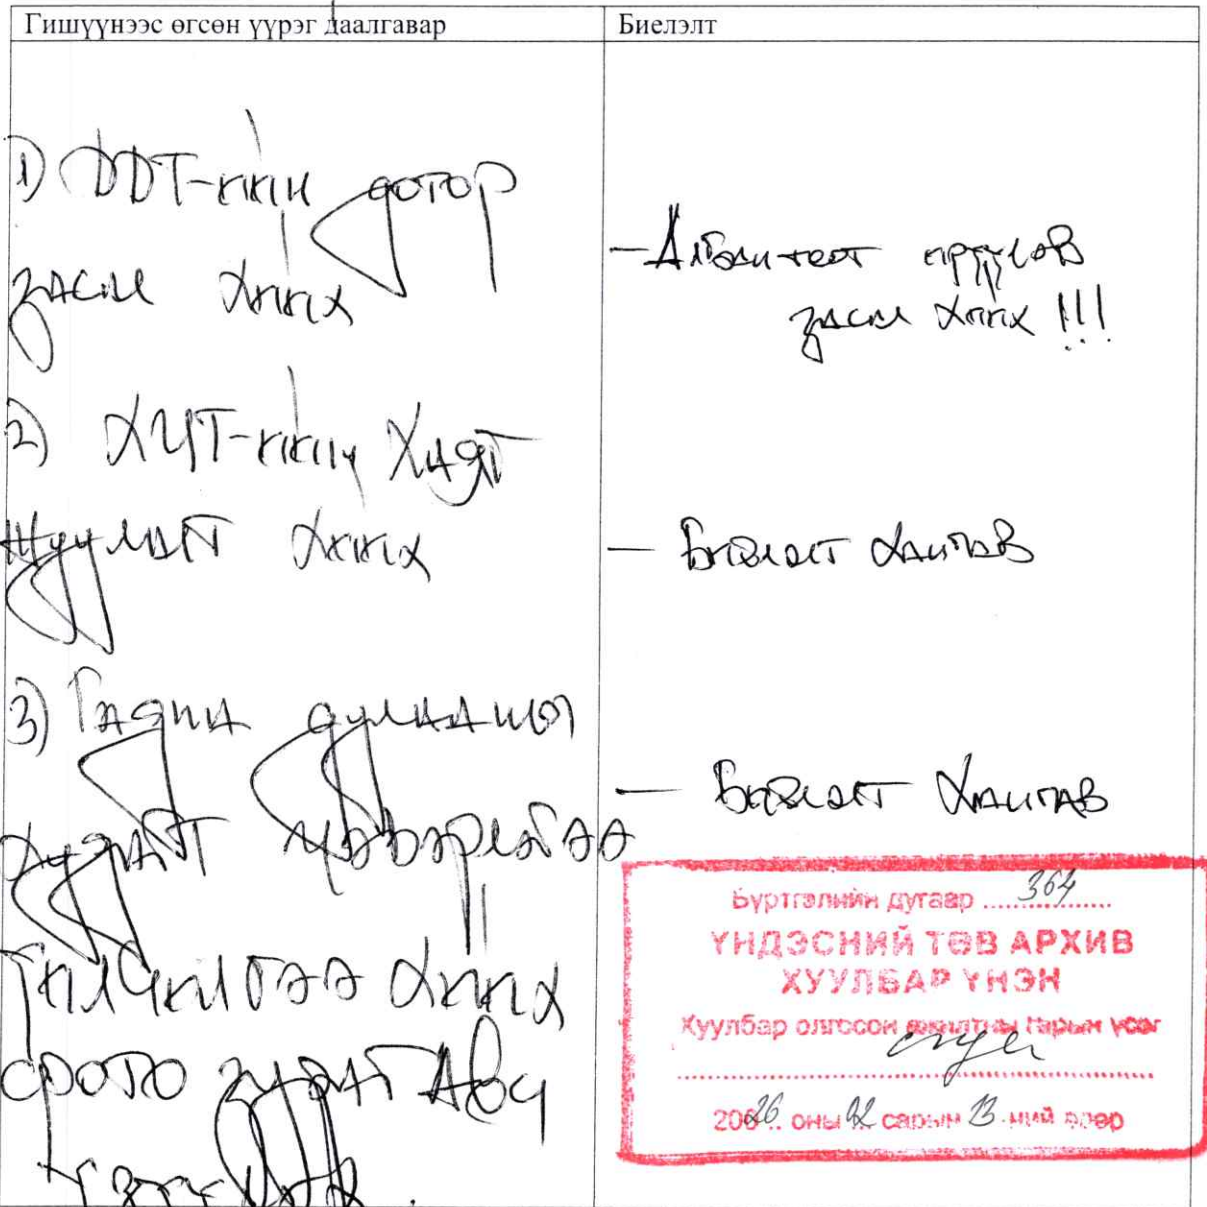 Гишүүнээс өгсөн үүрэг даалгавар
Биелэлт
1) ДДТ-ийн дотор
засал хийх
- Албан тоот өгүүлэв
засал хийх !!!
2) ХЦТ-ийн Хаягт
жуулалт хийх
- Биелэлт хангав
3) Гадна дулааны
худагт цэвэрлэгээ
үйлчилгээ хийх
фото зураг авч
- Биелэлт хангав
Бүртгэлийн дугаар 364
ҮНДЭСНИЙ ТӨВ АРХИВ
ХУУЛБАР ҮНЭН
Хуулбар олгосон ажилтны гарын үсэг
2026 оны 02 сарын 13-ний өдөр